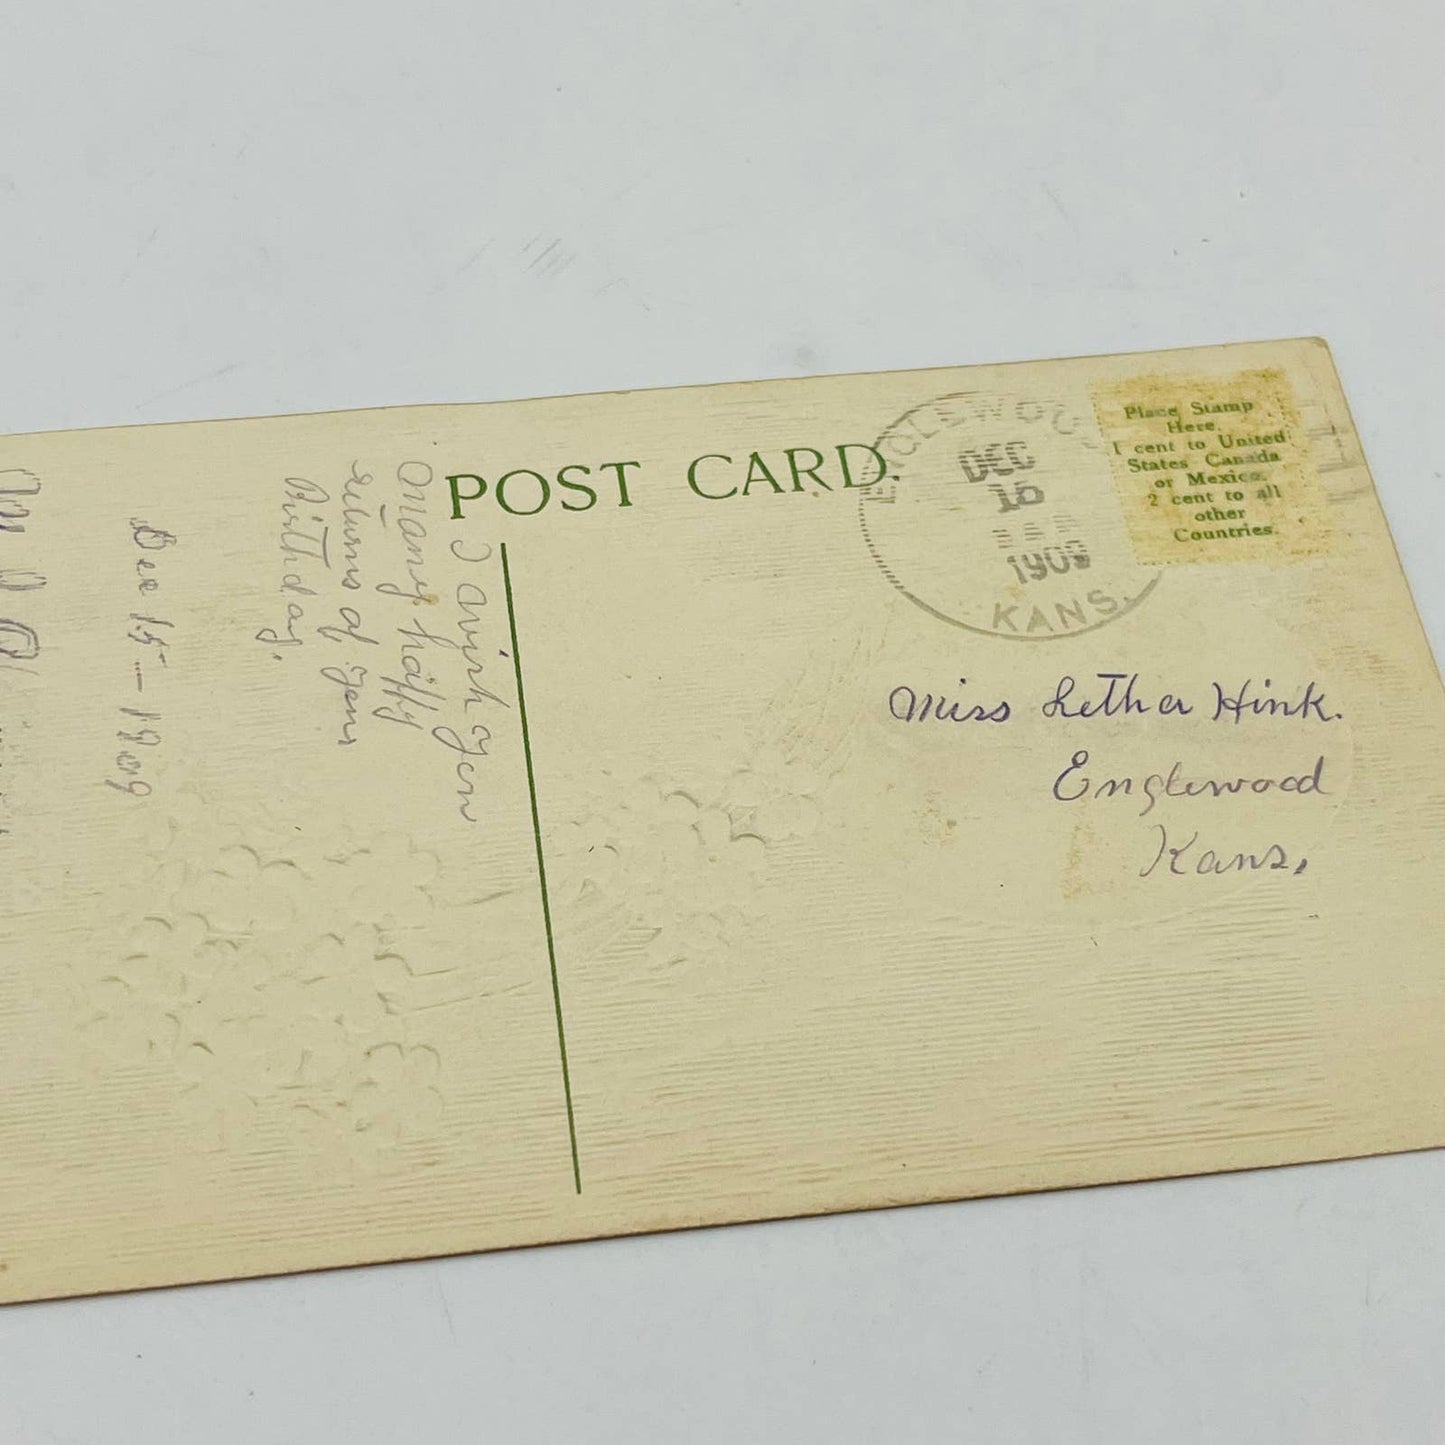 POST CARD.
ENGLEWOOD
DEC
16
1909
KANS.
Place Stamp
Here.
1 cent to United
States Canada
or Mexico.
2 cent to all
other
Countries.
Miss Letha Hink.
Englewood
Kans.
I wish you
many happy
returns of your
Birthday.
Dec 15 - 1909